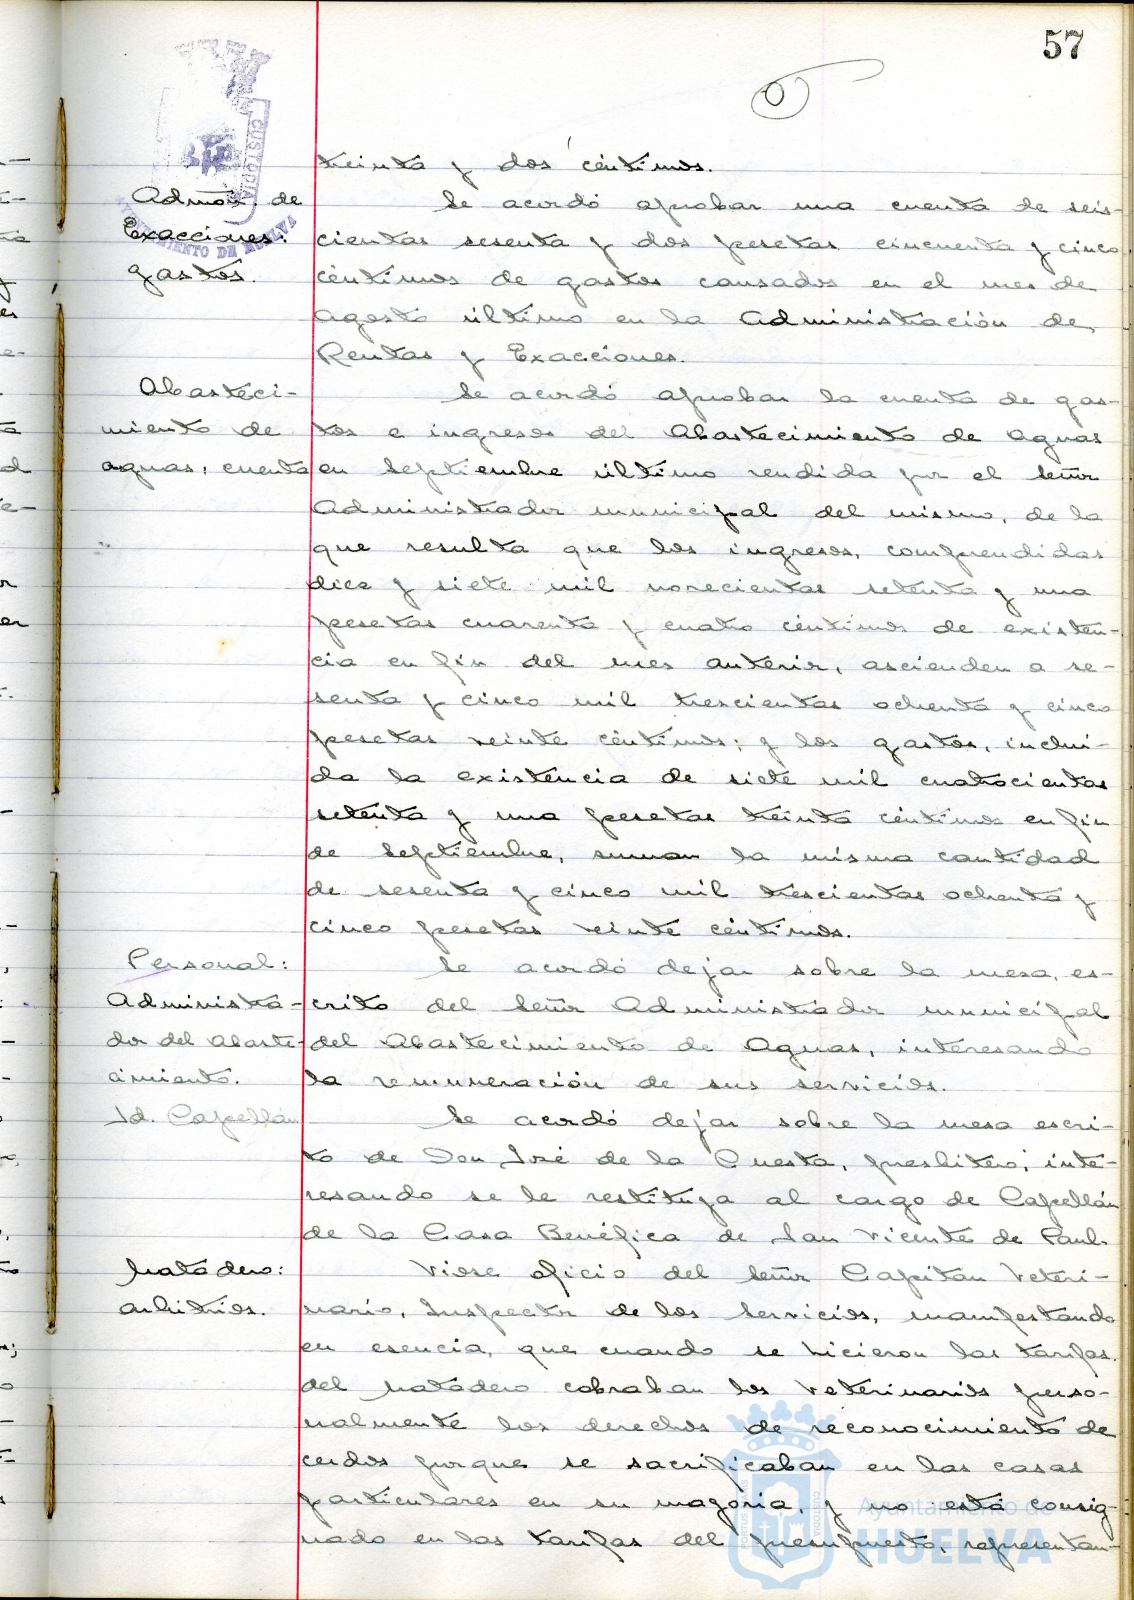 57
treinta y dos céntimos.
Admón. de
Exacciones:
gastos.
Se acordó aprobar una cuenta de seis-
cientas sesenta y dos pesetas cincuenta y cinco
céntimos de gastos causados en el mes de
Agosto último en la Administración de
Rentas y Exacciones.
Abasteci-
miento de
aguas: cuenta
Se acordó aprobar la cuenta de gas-
tos e ingresos del Abastecimiento de Aguas
en Septiembre último rendida por el Señor
Administrador municipal del mismo, de la
que resulta que los ingresos, comprendidas
diez y siete mil novecientas setenta y una
pesetas cuarenta y cuatro céntimos de existen-
cia en fin del mes anterior, ascienden a se-
senta y cinco mil trescientas ochenta y cinco
pesetas veinte céntimos; y los gastos, inclui-
da la existencia de siete mil cuatrocientas
setenta y una pesetas treinta céntimos en fin
de Septiembre, suman la misma cantidad
de sesenta y cinco mil trescientas ochenta y
cinco pesetas veinte céntimos.
Personal:
Administra-
dor del Abaste-
cimiento.
Se acordó dejar sobre la mesa, es-
crito del Señor Administrador municipal
del Abastecimiento de Aguas, interesando
la remuneración de sus servicios.
Id. Capellán
Se acordó dejar sobre la mesa escri-
to de Don José de la Cuesta, presbítero, inte-
resando se le restituya al cargo de Capellán
de la Casa Benéfica de San Vicente de Paul.
Matadero:
arbitrios.
Vióse oficio del Señor Capitán Veteri-
nario, Inspector de los Servicios, manifestando
en esencia, que cuando se hicieron las tarifas
del Matadero cobraban los Veterinarios perso-
nalmente los derechos de reconocimiento de
cerdos porque se sacrificaban en las casas
particulares en su mayoria, y no está consig-
nado en las tarifas del presupuesto, representan-
CUSTODIA
AYUNTAMIENTO DE HUELVA
Ayuntamiento de
HUELVA